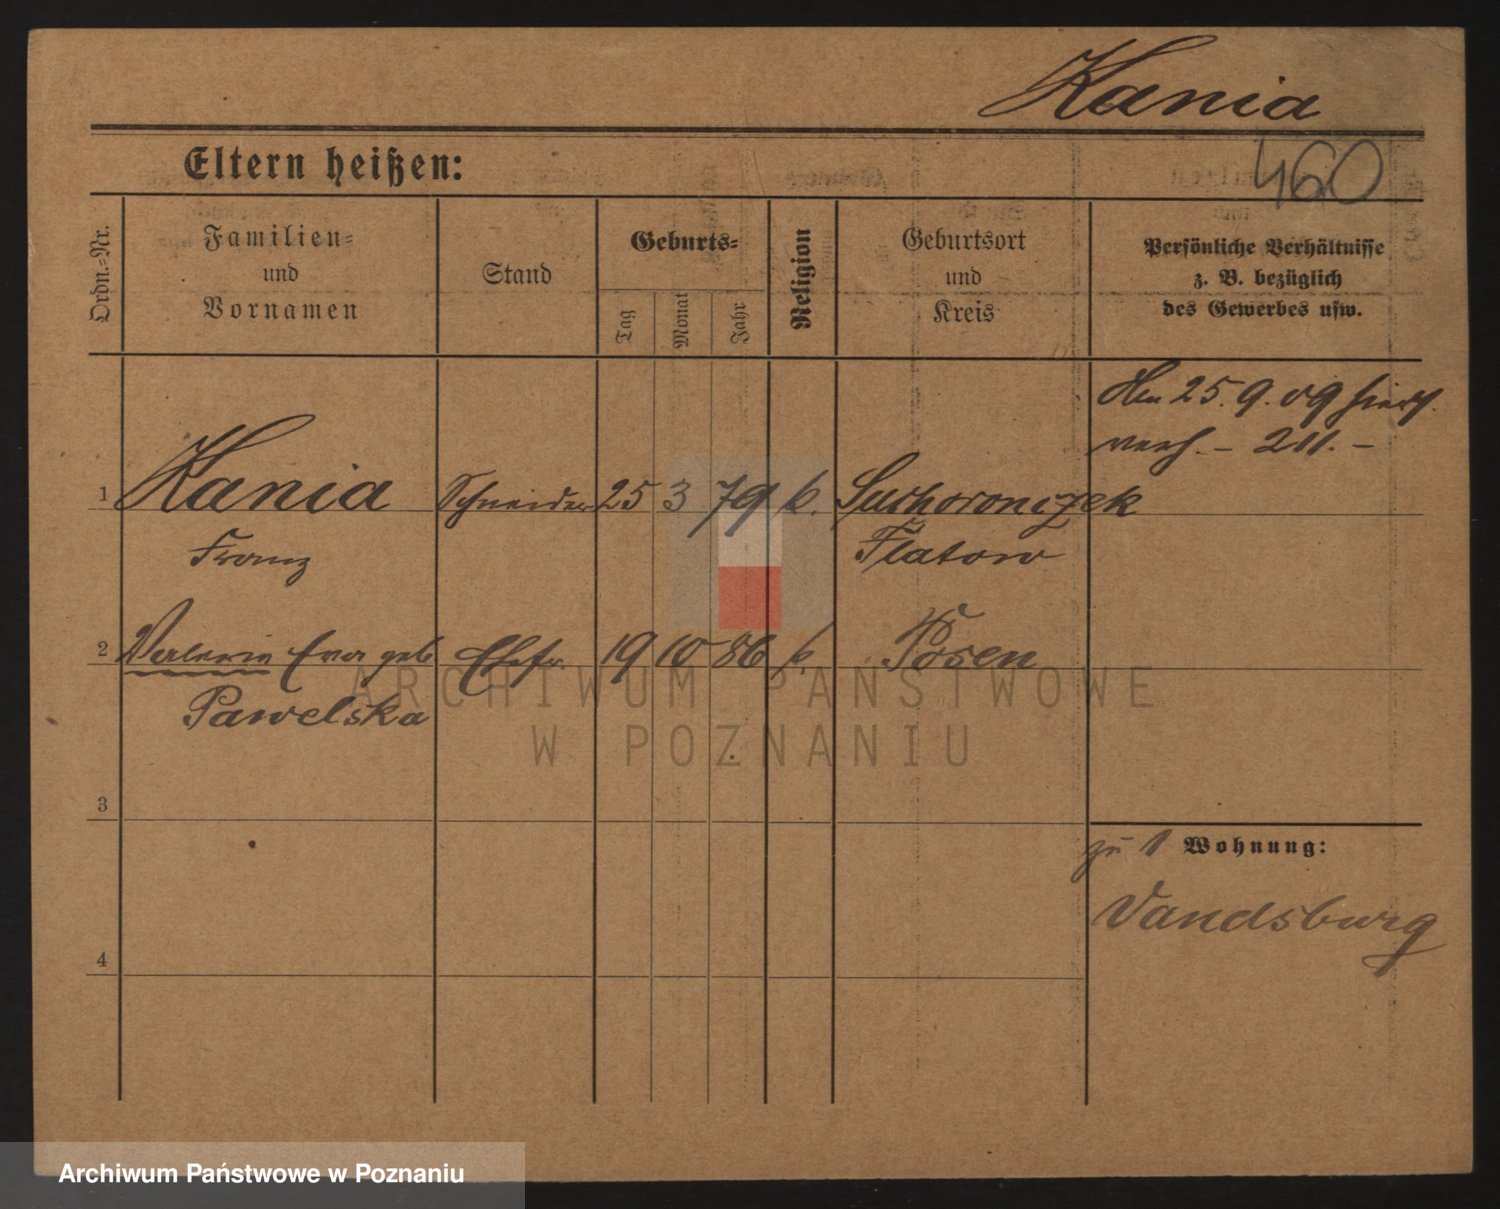 Kania
Eltern heißen:
460
Ordn.-Nr.
Familien-
und
Vornamen
Stand
Geburts-
Tag
Monat
Jahr
Religion
Geburtsort
und
Kreis
Persönliche Verhältnisse
z. B. bezüglich
des Gewerbes usw.
25.9.09
verh. – 211. –
1 Kania Schneider 25 3 79 k. Suchoronczek
Franz Flatow
2 Valerie Eva geb Ehefr. 19 10 86 k. Posen
Pawelska
ARCHIWUM PAŃSTWOWE
W POZNANIU
3
zu 1 Wohnung:
Vandsburg
4
Archiwum Państwowe w Poznaniu